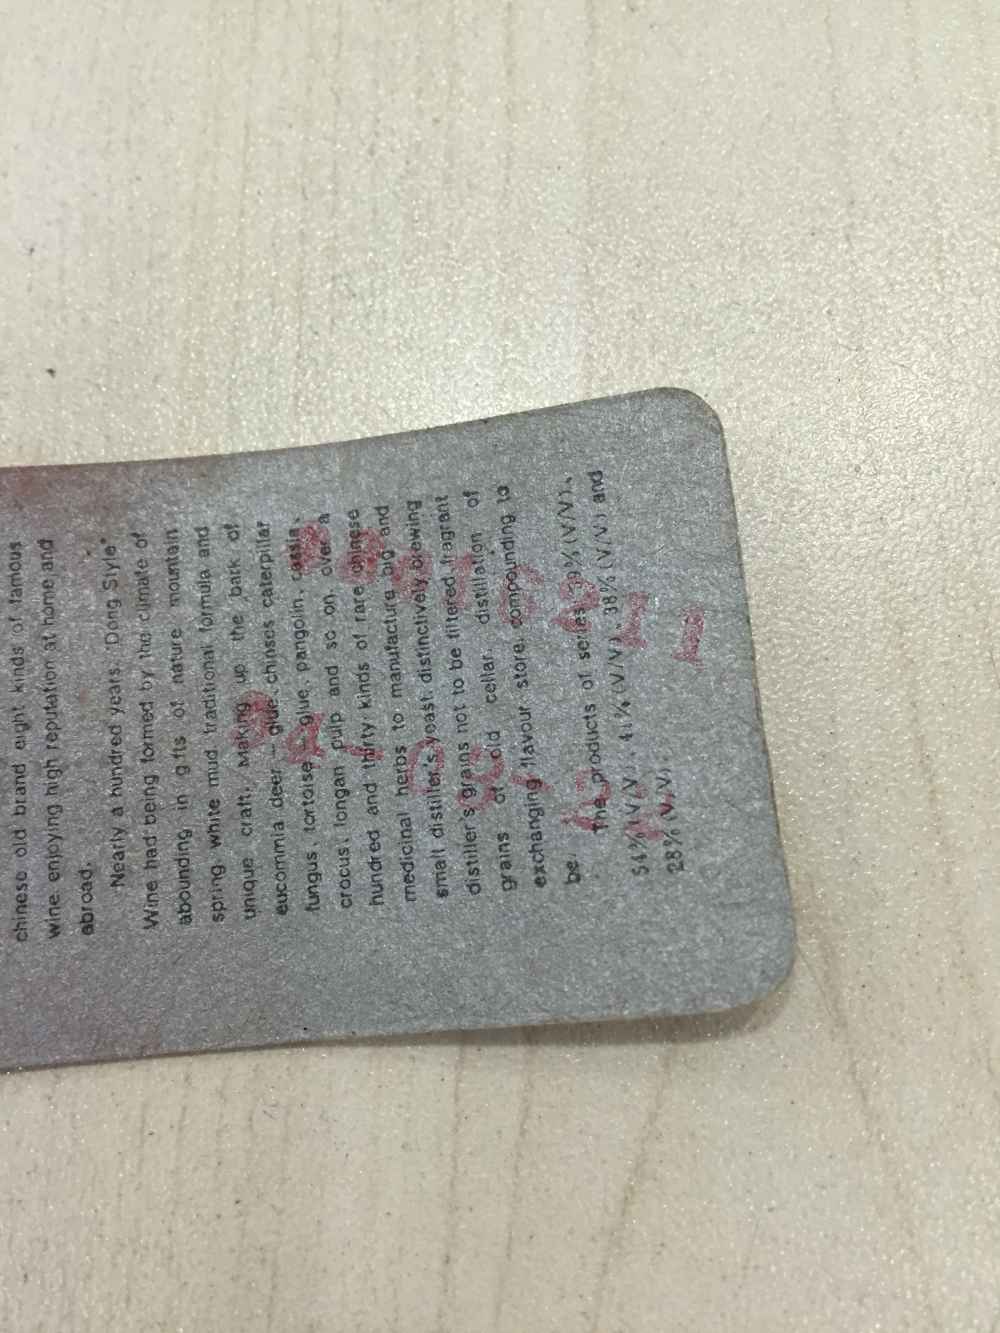 chinese old brand eight kinds of famous
wine enjoying high reputation at home and
abroad.
"Nearly a hundred years, "Dong Style"
Wine had being formed by the climate of
abounding in gifts of nature mountain
spring white mud traditional formula and
unique craft, Making up the bark of
eucommia deer - glue chinses caterpillar
fungus, tortoise glue, pangolin, cassia,
crocus, longan pulp and so on, over a
hundred and thirty kinds of rare chinese
medicinal herbs to manufacture big and
small distiller's yeast, distinctively brewing
distiller's grains not to be filtered, fragrant
grains of old cellar, distillation of
exchanging flavour, store, compounding to
be.
The products of series
54% (V/V), 38% (V/V) and
28% (V/V).